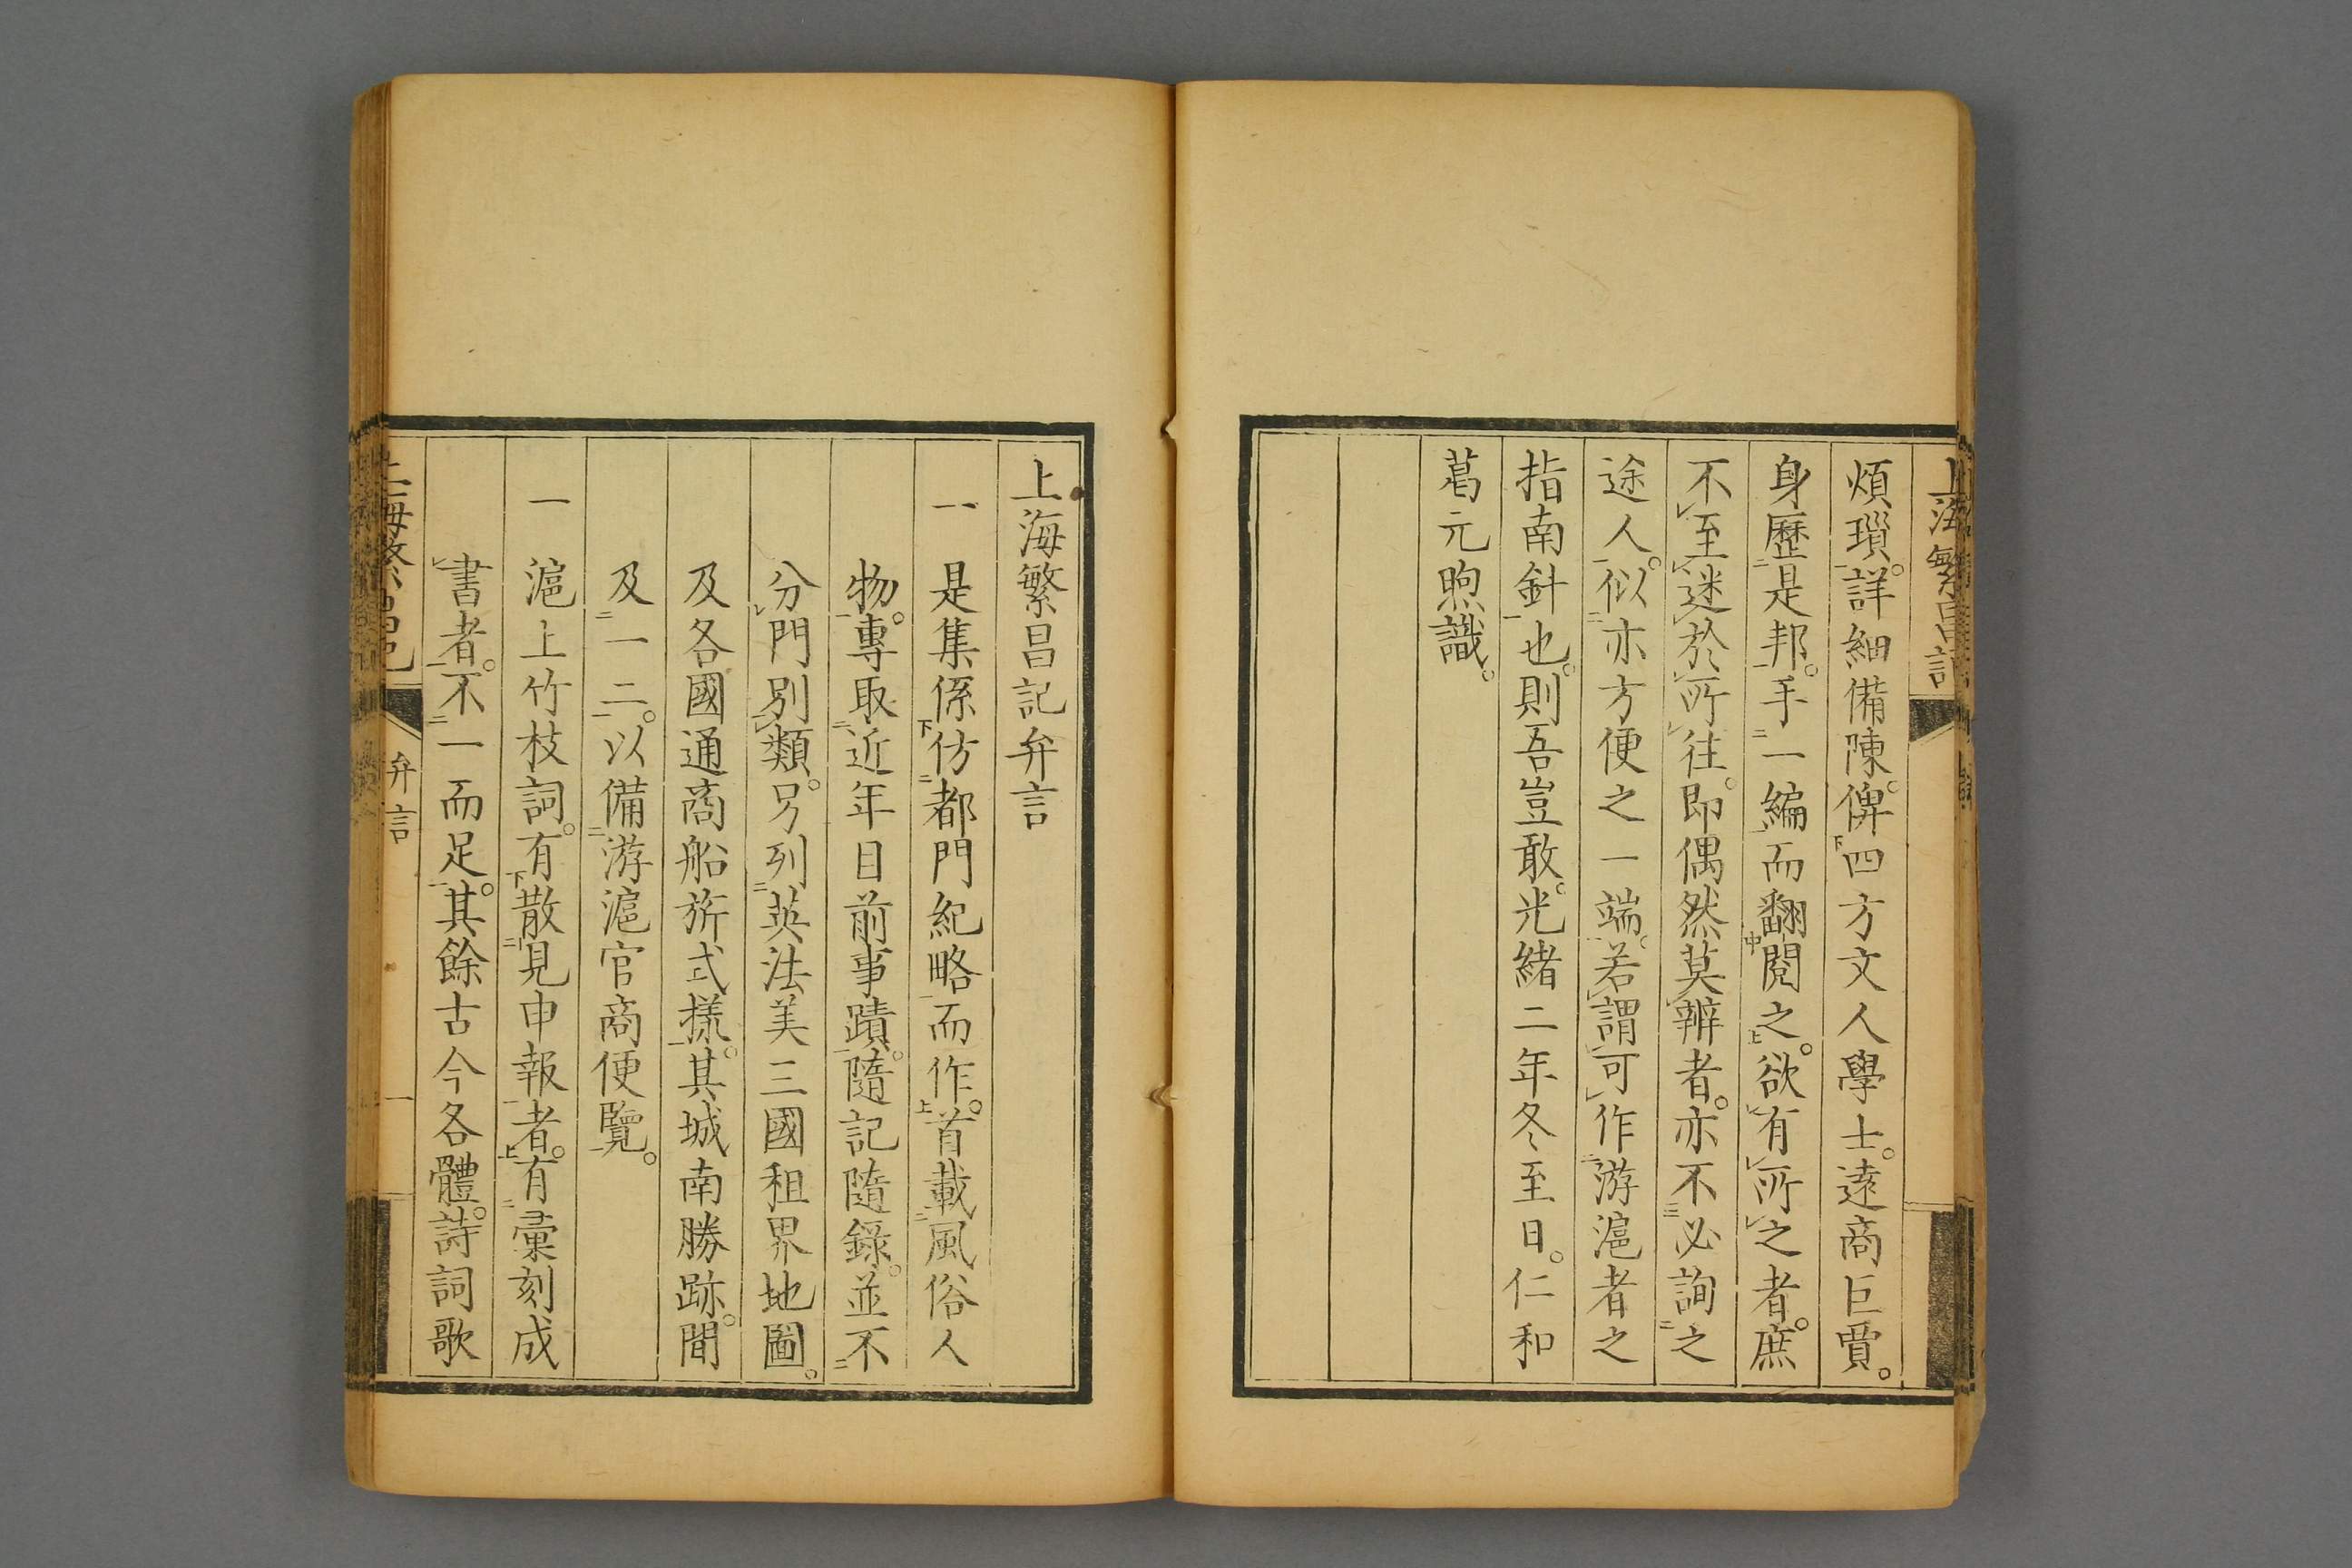 上海繁昌記
煩瑣。詳細備陳。俾四方文人學士。遠商巨賈。
身歷是邦。手一編而翻閱之。欲有所之者。庶
不至迷於所往。即偶然莫辨者。亦不必詢之
途人。似亦方便之一端。若謂可作游滬者之
指南針也。則吾豈敢。光緒二年冬至日。仁和
葛元煦識。
上海繁昌記弁言
一是集係仿都門紀略而作。首載風俗人
物。專取近年目前事蹟。隨記隨錄。並不
分門別類。另列英法美三國租界地圖。
及各國通商船旂式樣。其城南勝跡。間
及一二。以備游滬官商便覽。
一滬上竹枝詞。有散見申報者。有彙刻成
書者。不一而足。其餘古今各體。詩詞歌
上海繁昌記
弁言
一